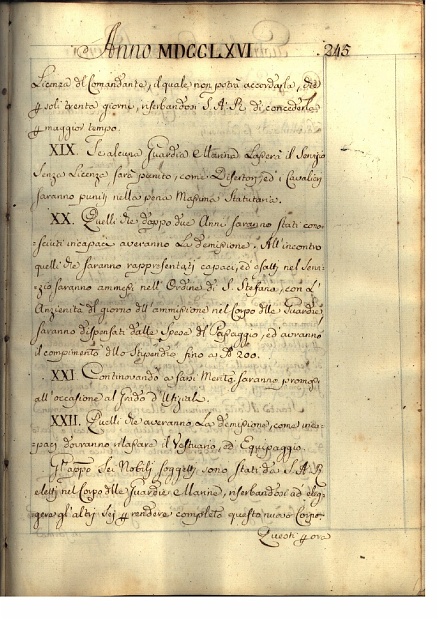 Anno MDCCLXVI 245
Licenza del Comandante, il quale non potrà accordarla, che
per soli trenta giorni, riserbandosi S. A. R. di concederla
per maggior tempo.
XIX. Se alcuna Guardia Marina Lascerà il Servizio
Senza Licenza, sarà punito, come Disertore, ed i Cavalieri
saranno puniti nella pena Massima Statutaria.
XX. Quelli che doppo due Anni saranno stati cono-
sciuti incapaci averanno La demissione. All'incontro
quelli che saranno rappresentati capaci, ed esatti nel Servi-
zio saranno ammessi nell'Ordine di S. Stefano, con L'
Anzienità del giorno dell'ammissione nel Corpo delle Guardie,
saranno dispensati dalle Spese del Passaggio, ed avranno
il compimento dello Stipendio fino a 200.
XXI Continovando a farsi Merito saranno promossi
all'occasione al Grado d'Ufizial.
XXII. Quelli che averanno La demissione, come inca-
paci dovranno rilasciare il Vestuario, ed Equipaggio.
Sei Nobili soggetti sono stati da S. A. R.
eletti nel Corpo delle Guardie Marine, riserbandosi ad eleg-
gere gl'altri Sei per rendere completo questo nuovo Corpo.
Questi per ora